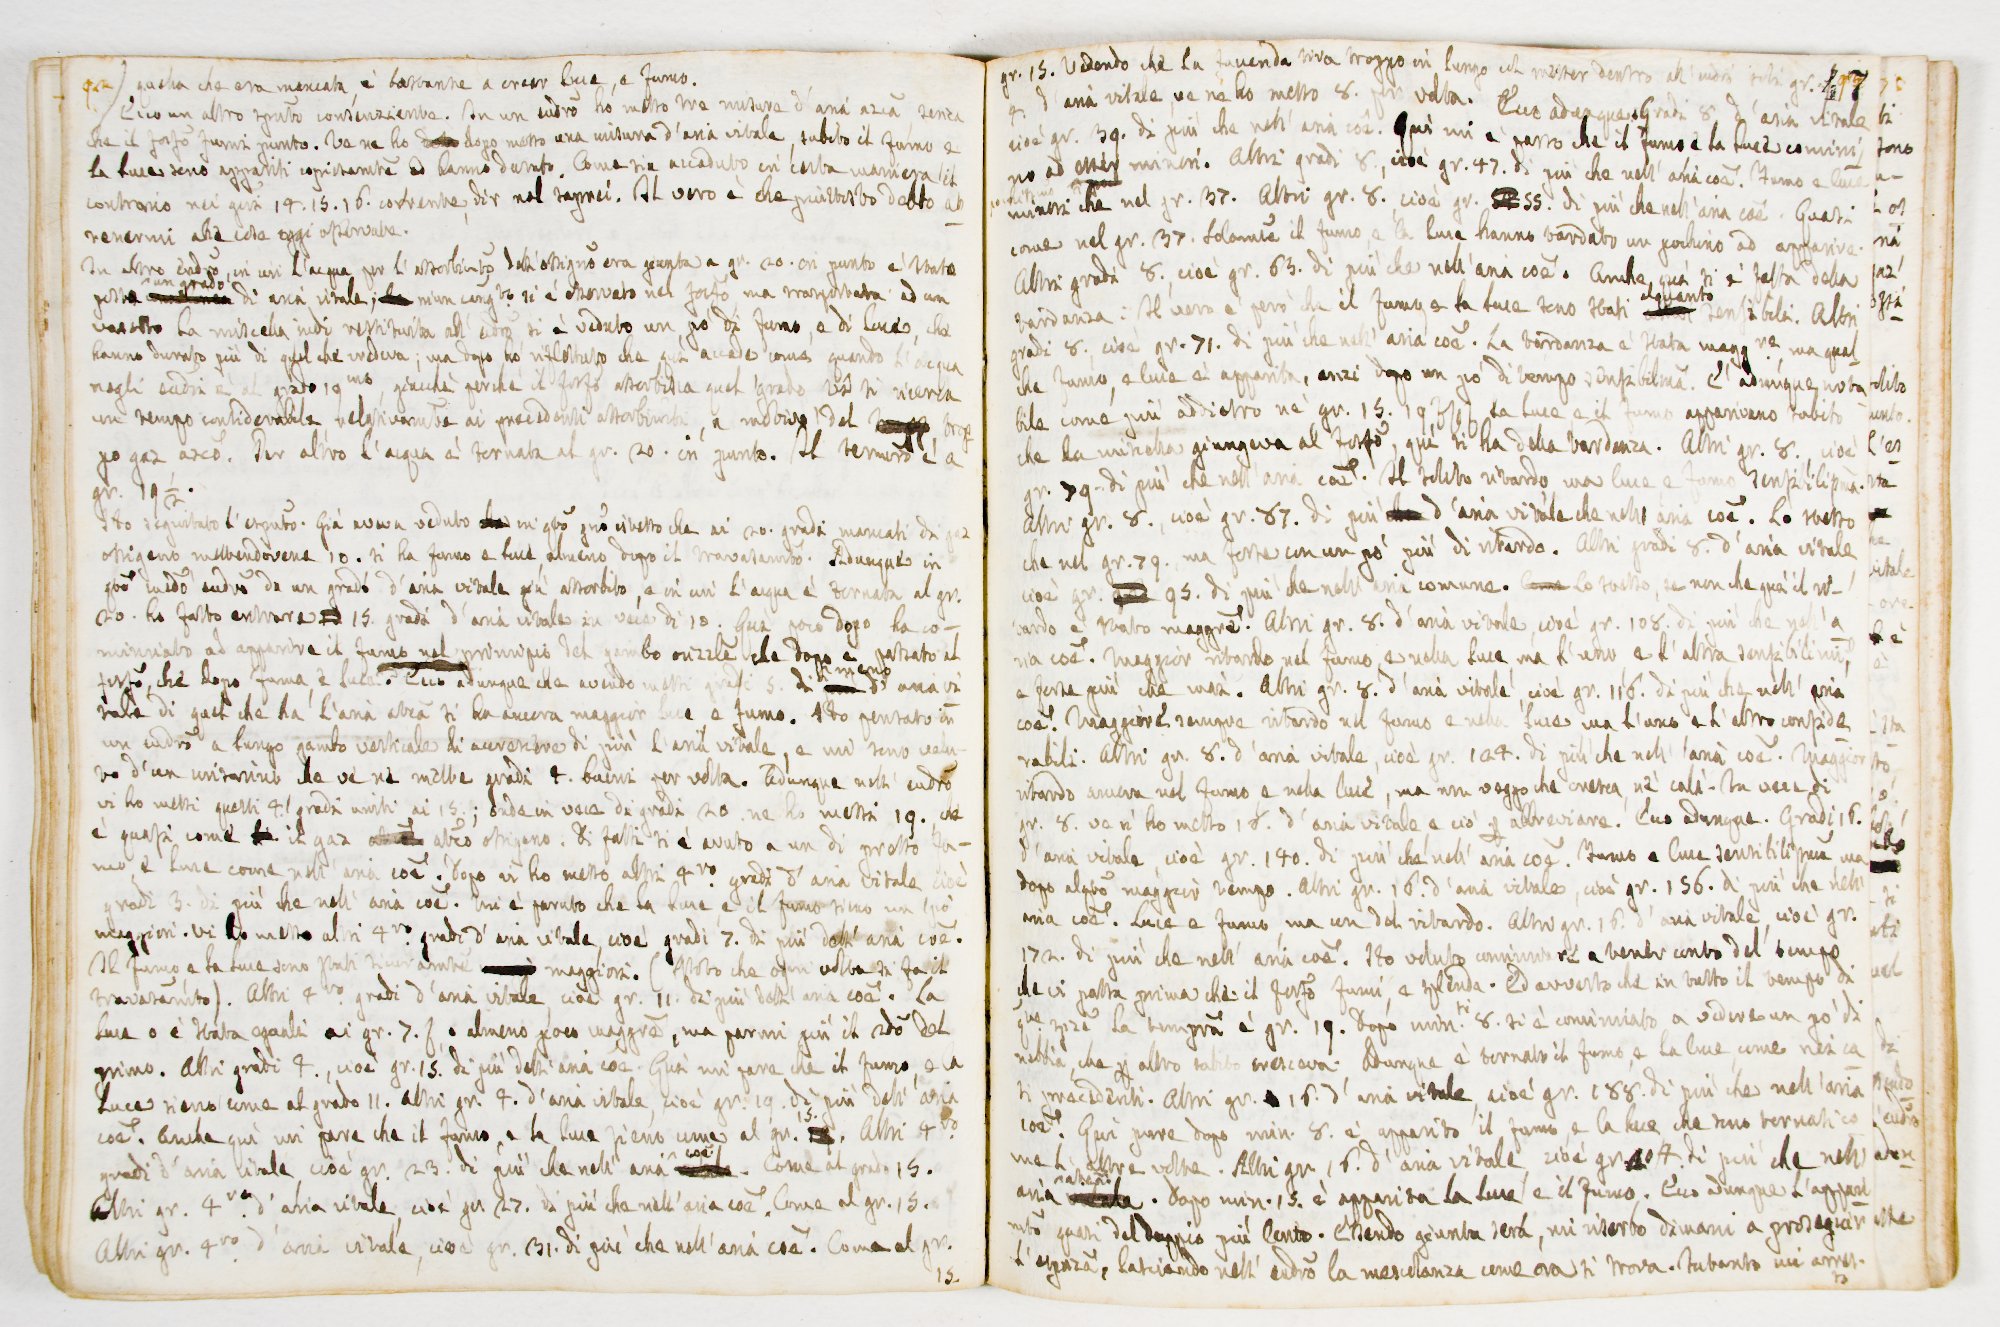 quella che era mancata, è bastante a crear luce, e fumo.
Ecco un altro sperim.to consenziente. In un eudro ho messo tre misure d'aria azca senza
che il fosfo fumi punto. Ve ne ho dopo messo una misura d'aria vitale, subito il fumo e
la luce sono appariti copiosamte ed hanno durato. Come sia accaduto in certa maniera il
contrario nei giri 14. 15. 16. corrente, dir nol saprei. Il vero è che piuttosto debbo at
tenermi alle cose oggi osservate.
In altro eudro, in cui l'acqua per l'assorbimto dell'ossigno era giunta a gr. 20. in punto è stato
un grado
di aria vitale; niun cangto si è osservato nel fosfo, ma trasportata ad un
la miscela indi restituita all'eudro si è veduto un pò di fumo, e di luce, che
hanno durato più di quel che credeva; ma dopo ho riflettuto che già accade come quando l'acqua
negli eudri è al grado 19 giacchè perchè il fosfo assorbisca quel grado si ricerca
un tempo considerabile relativamte ai precedenti assorbimti, a motivo del trop
po gaz azco. Per altro l'acqua è tornata al gr. 20. in punto. Il termro è a
gr. 19 1/2.
Ho seguitato l'esprto. Già aveva veduto in che ai 20. gradi mancati di gaz
ossigeno mettendovene 10. si ha fumo e luce, almeno dopo il travasamto. Adunque in
eudro da un grado d'aria vitale già assorbito, e in cui l'acqua è tornata al gr.
20. ho fatto entrare 15. gradi d'aria vitale in vece di 10. Già poco dopo ha co-
minciato ad apparire il fumo nel principio del gambo orizzle che dopo è passato al
fosfo, che dopo fuma, e luce. Ecco adunque che avendo messi gradi 5. di meno di aria vi
tale di quel che ha l'aria atca si ha ancora maggior luce e fumo. Ho pensato in
un eudro a lungo gambo verticale di accrescere di più l'aria vitale, e mi sono valu-
to d'un misurino che ve ne mette gradi 4. buoni per volta. Adunque nell'eudro
vi ho messi questi 4. gradi uniti ai 15.; onde in vece di gradi 20. ne ho messi 19. che
è quasi come il gaz atco ossigeno. Di fatti si è avuto a un di presso fu-
mo, e luce come nell'aria coe. Dopo vi ho messo altri 4ro gradi d'aria vitale cioè
gradi 3. di più che nell'aria coe. Mi è paruto che la luce, e il fumo sieno un pò
maggiori. Vi ho messo altri 4ro gradi d'aria vitale, cioè gradi 7. di più dell'aria coe.
Il fumo e la luce sono stati sicuramte maggiori. (Noto che ogni volta si fa il
travasamto). Altri 4ro gradi d'aria vitale cioè gr. 11. di più dell'aria coe. La
luce o è stata eguale ai gr. 7. o almeno poco maggre, ma parmi più il 2do del
primo. Altri gradi 4., cioè gr. 15. di più dell'aria coe. Qui mi pare che il fumo, e la
luce sieno come al grado 11. Altri gr. 4. d'aria vitale, cioè gr. 19. di più dell'aria
coe. Anche qui mi pare che il fumo, e la luce sieno come al gr. 15. Altri 4ro
gradi d'aria vitale, cioè gr. 23. di più che nell'aria coe. Come al grado 15.
Altri gr. 4ro d'aria vitale, cioè gr. 27. di più che nell'aria coe. Come al gr. 15.
Altri gr. 4ro d'aria vitale, cioè gr. 31. di più che nell'aria coe. Come al gr.
15
gr. 15. Vedendo che la facenda tira troppo in lungo col metter dentro all'eudro soli gr.
4. d'aria vitale, ve ne ho messo 8. per volta. Ecco adunque. Gradi 8. d'aria vitale
cioè gr. 39. di più che nell'aria coe. Qui mi è parso che il fumo e la luce cominci
no ad esser minori. Altri gradi 8., cioè gr. 47. di più che nell'aria coe. Fumo e luce
minori che nel gr. 37. Altri gr. 8., cioè gr. 55. di più che nell'aria coe. Quasi
come nel gr. 37. Solamte il fumo, e la luce hanno tardato un pochino ad apparire.
Altri gradi 8. cioè gr. 63. di più che nell'aria coe. Anche quà si è della
tardanza. Il vero è però che il fumo e la luce sono stati alquanto sensibili. Altri
gradi 8. cioè gr. 71. di più che nell'aria coe. La tardanza è stata maggre, ma qual
che fumo, e luce è apparita, anzi dopo un pò di tempo sensibilmte. È adunque nota
bile come più addietro ne' gr. 15. 19 la luce e il fumo apparivano subito
che la miscela giungeva al fosfo, qui si ha della tardanza. Altri gr. 8., cioè
gr. 79. di più che nell'aria coe. Il solito ritardo, ma luce e fumo sensibilissma.
Altri gr. 8., cioè gr. 87. di più d'aria vitale che nell'aria coe. Lo stesso
che nel gr. 79., ma forse con un pò più di ritardo. Altri gradi 8. d'aria vitale
cioè gr. 95. di più che nell'aria comune. Lo stesso, se non che quà il ri-
tardo è stato maggre. Altri gr. 8. d'aria vitale, cioè gr. 108. di più che nell'a
ria coe. Maggior ritardo nel fumo, e nella luce ma l'uno, e l'altra sensibilissmi,
e forse più che mai. Altri gr. 8. d'aria vitale, cioè gr. 116. di più che nell'aria
coe. Maggiore sempre ritardo nel fumo e nella luce ma l'uno e l'altro conside
rabili. Altri gr. 8. d'aria vitale, cioè gr. 124. di più che nell'aria coe. Maggior
ritardo ancora nel fumo, e nella luce, ma non veggo che cresca, nè cali. In vece di
gr. 8. ve n'ho messo 16. d'aria vitale e ciò p abbreviare. Ecco adunque. Gradi 16.
d'aria vitale, cioè gr. 140. di più che nell'aria coe. Fumo e luce sensibilissma ma
dopo alqto maggior tempo. Altri gr. 16. d'aria vitale, cioè gr. 156. di più che nell'
aria coe. Luce e fumo, ma con del ritardo. Altri gr. 16. d'aria vitale, cioè gr.
172. di più che nell'aria coe. Ho voluto cominciare a tener conto del tempo
che vi passa prima che il fosfo fumi, e splenda. Ed avverto che in tutto il tempo di
la tempra è gr. 19. Dopo min.ti 8. si è cominciato a vedere un pò di
nebbia, che p altro subito cresceva. Adunque è tornato il fumo, e la luce, come nei ca
si precedenti. Altri gr. 16. d'aria vitale cioè gr. 188. di più che nell'aria
coe. Qui pure dopo min. 8. è apparito il fumo, e la luce che sono tornati co
me l'altre volte. Altri gr. 16. d'aria vitale, cioè gr. 204. di più che nell'
aria . Dopo min. 15. è apparita la luce e il fumo. Ecco adunque l'appari
mto quasi del doppio più lento. Essendo giunta sera, mi riserbo dimani a proseguir
l'esprza, lasciando nell'eudro la mescolanza come ora si trova. Intanto mi arres-
to